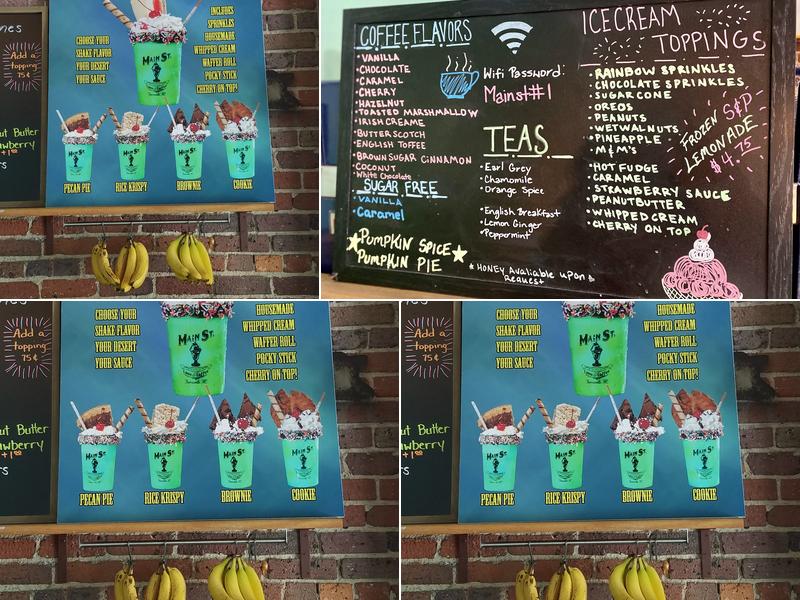 Add a
topping
75¢
CHOOSE YOUR
SHAKE FLAVOR
YOUR DESERT
YOUR SAUCE
INCLUDES
SPRINKLES
HOUSEMADE
WHIPPED CREAM
WAFFER ROLL
POCKY STICK
CHERRY ON TOP!
MAIN ST.
PECAN PIE
RICE KRISPY
BROWNIE
COOKIE
COFFEE FLAVORS
• VANILLA
• CHOCOLATE
CARAMEL
• CHERRY
HAZELNUT
• TOASTED MARSHMALLOW
• IRISH CREAME
• BUTTERSCOTCH
• ENGLISH TOFFEE
• BROWN SUGAR CINNAMON
• COCONUT
• White Chocolate
SUGAR FREE
• VANILLA
• Caramel
Pumpkin SPICE
Pumpkin PIE
Wifi Password:
Mainst#1
TEAS
• Earl Grey
• Chamomile
• Orange Spice
• English Breakfast
• Lemon Ginger
• Peppermint
* HONEY Avaliable upon
Request
ICECREAM
TOPPINGS
• RAINBOW SPRINKLES
• CHOCOLATE SPRINKLES
• SUGAR CONE
• OREOS
• PEANUTS
• WETWALNUTS
• PINEAPPLE
• M&M'S
• HOT FUDGE
• CARAMEL
• STRAWBERRY SAUCE
• PEANUTBUTTER
• WHIPPED CREAM
• CHERRY ON TOP
FROZEN S&P
LEMONADE
$4.75
Add a
topping
75¢
CHOOSE YOUR
SHAKE FLAVOR
YOUR DESERT
YOUR SAUCE
HOUSEMADE
WHIPPED CREAM
WAFFER ROLL
POCKY STICK
CHERRY ON TOP!
MAIN ST.
PECAN PIE
RICE KRISPY
BROWNIE
COOKIE
Add a
topping
75¢
CHOOSE YOUR
SHAKE FLAVOR
YOUR DESERT
YOUR SAUCE
HOUSEMADE
WHIPPED CREAM
WAFFER ROLL
POCKY STICK
CHERRY ON TOP!
MAIN ST.
PECAN PIE
RICE KRISPY
BROWNIE
COOKIE